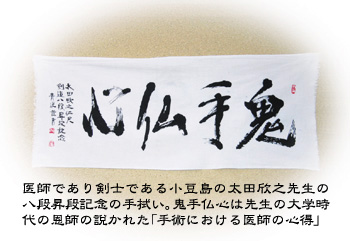 鬼手仏心
太田欣之先生
剣道八段昇段記念
医師であり剣士である小豆島の太田欣之先生の
八段昇段記念の手拭い。鬼手仏心は先生の大学時
代の恩師の説かれた「手術における医師の心得」